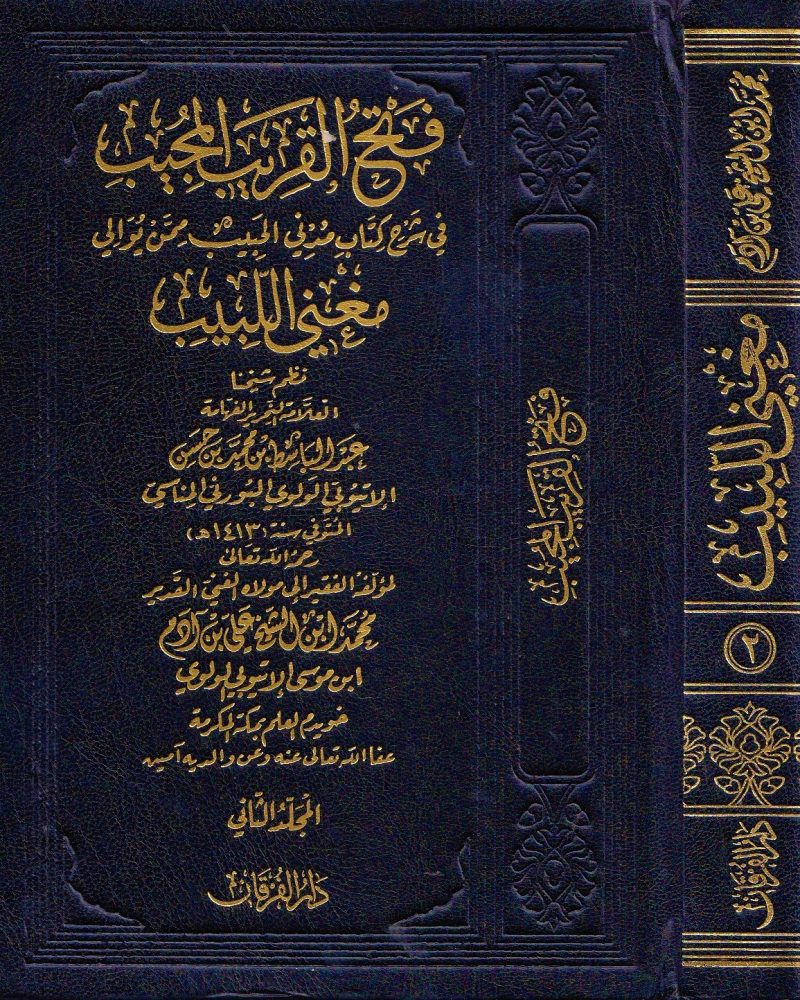 فَتْحُ القَرِيبِ المُجِيبِ
في شَرْحِ كِتَابِ مُدْنِي الحَبِيبِ مِمَّنْ يُوَالِي
مُغْنِي اللَّبِيبِ
نظم شيخنا
العلامة النحرير الفهامة
عبد الباسط بن محمد بن حسن
الإتيوبي الولوي البورني المناسي
المتوفى سنة (١٤١٣هـ)
رحمه الله تعالى
لمؤلفه الفقير إلى مولاه الغني القدير
محمد ابن الشيخ علي بن آدم
ابن موسى الإتيوبي الولوي
خويدم العلم بمكة المكرمة
عفا الله تعالى عنه وعن والديه آمين
المجلد الثاني
دار الفرقان
فتح القريب المجيب
محمد ابن الشيخ علي بن آدم
مغني اللبيب
٢
دار الفرقان